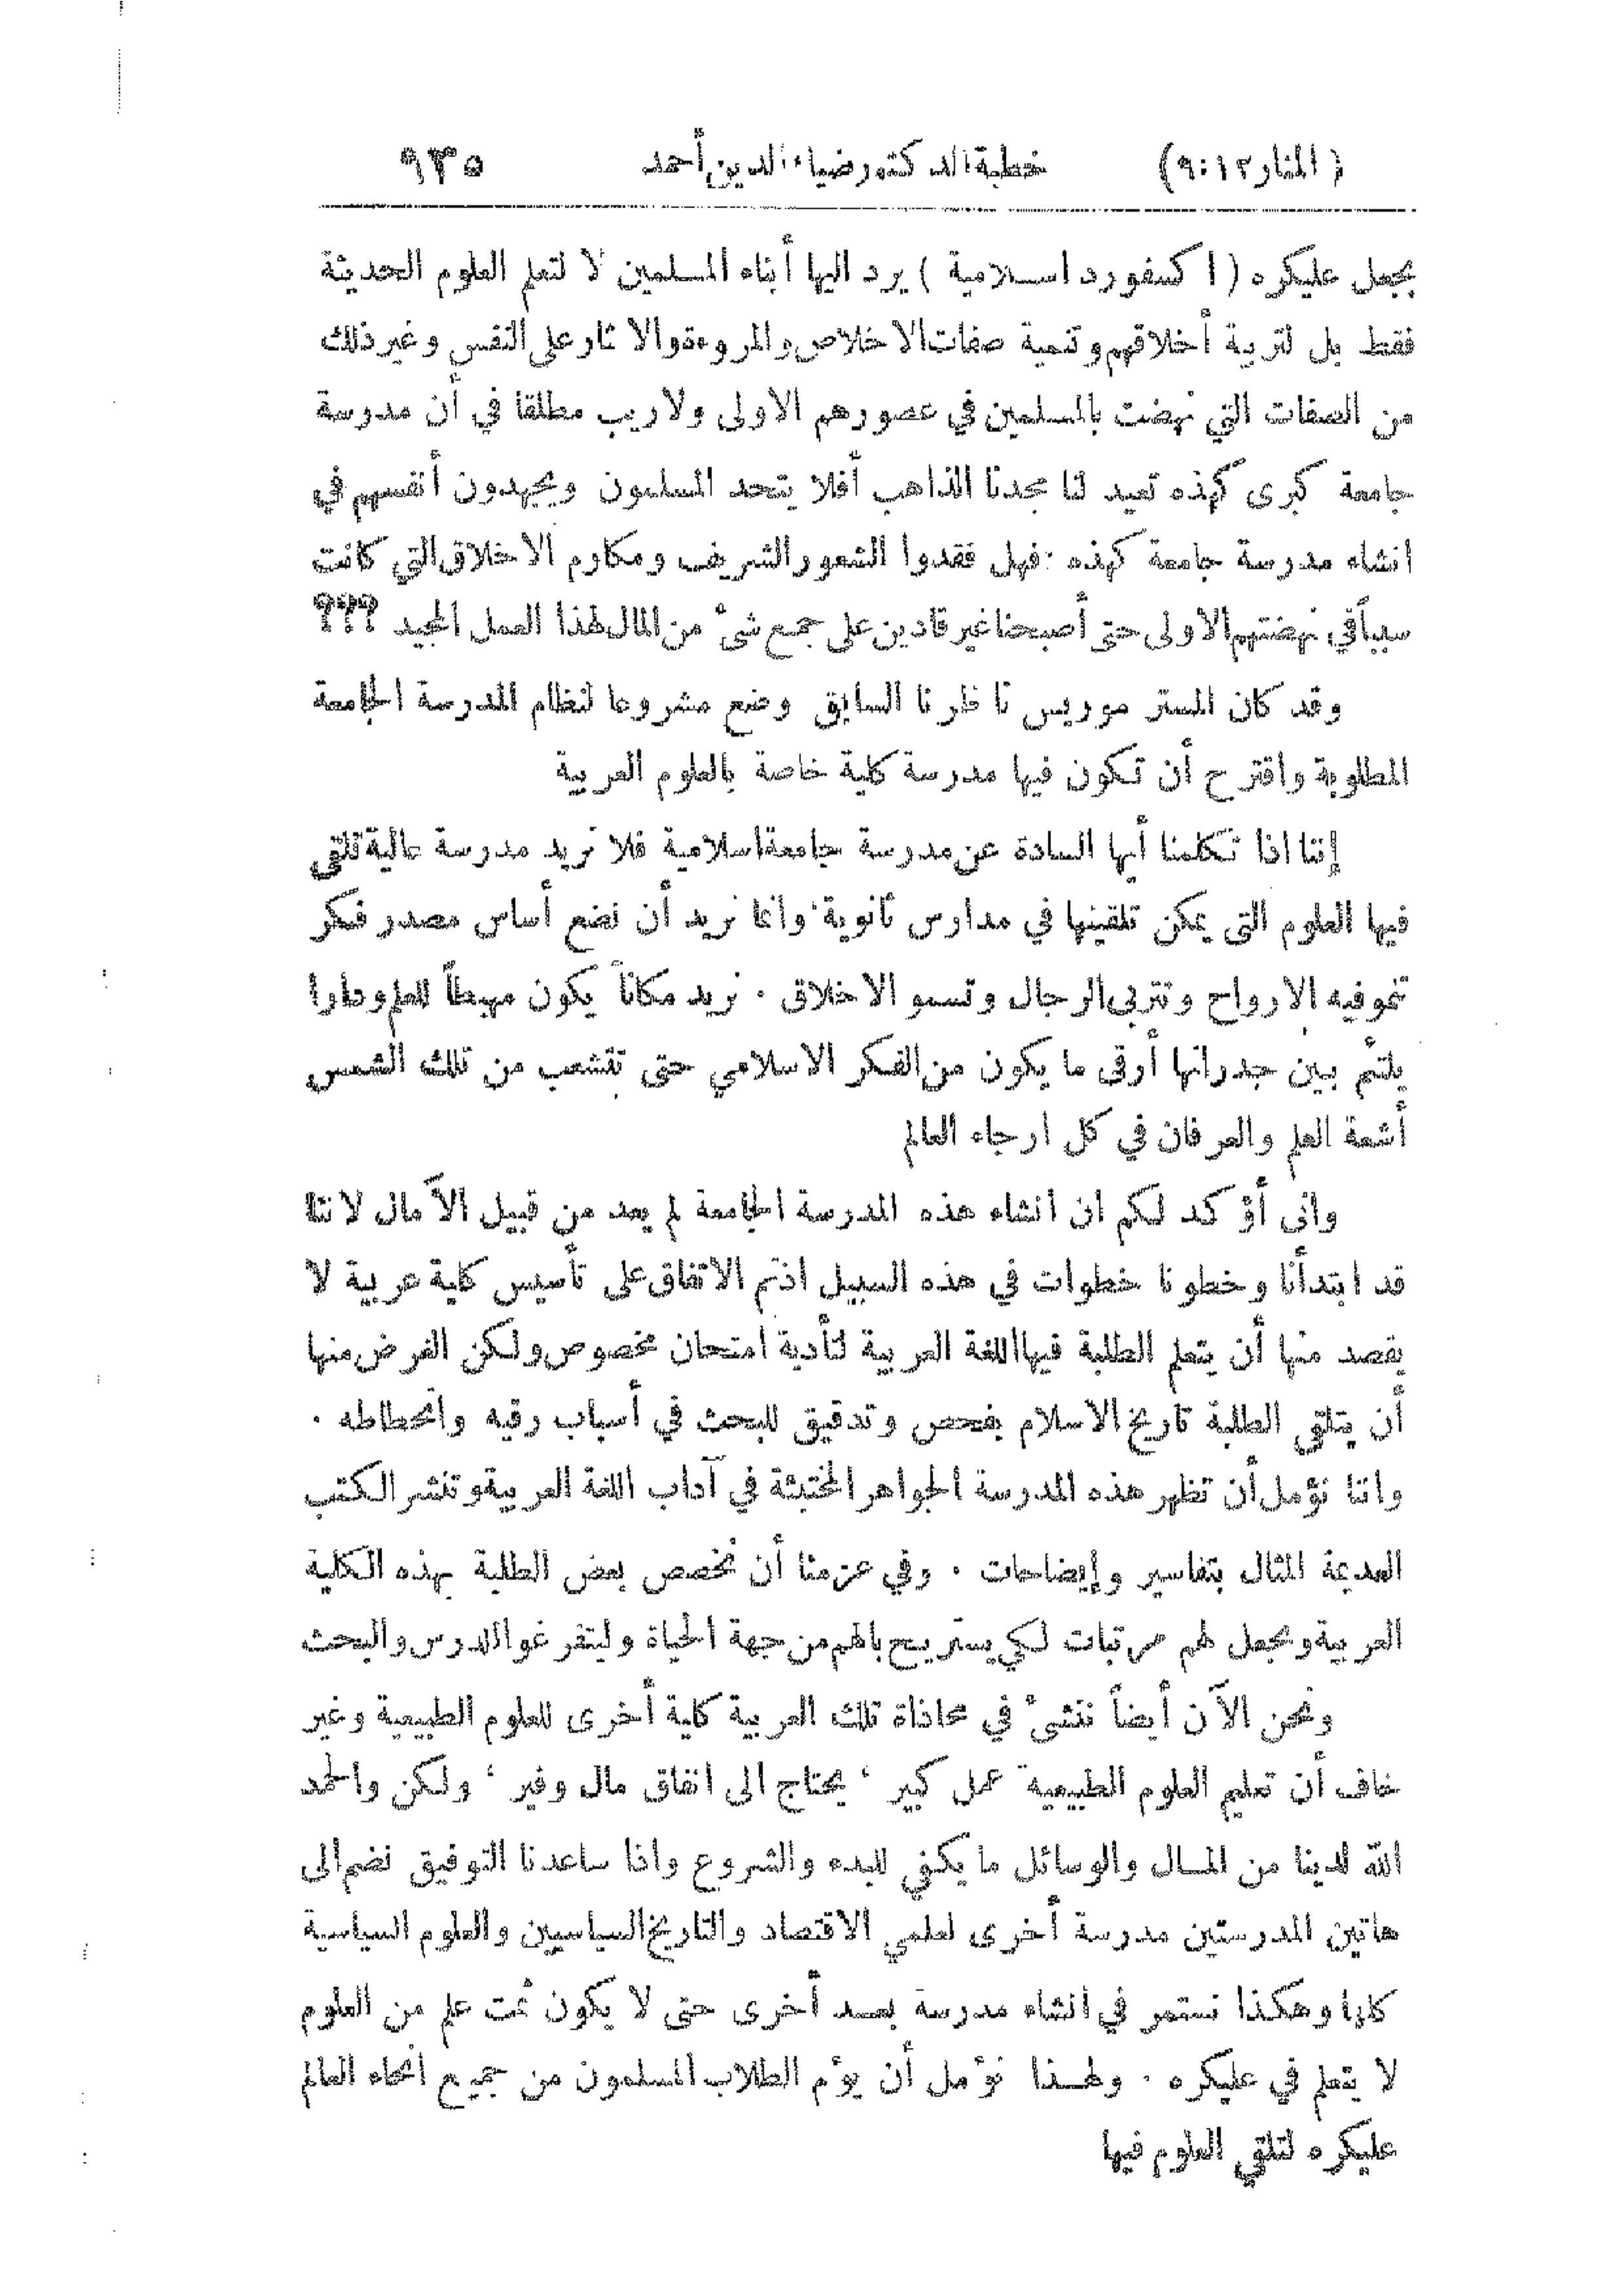 (المنار ١٢:٩) خطبة الدكتور ضياء الدين أحمد ٩٣٥
يجعل عليكره (اكسفورد اسلامية) يرد اليها أبناء المسلمين لا لتعلم العلوم الحديثة
فقط بل لتربية أخلاقهم وتنمية صفات الاخلاص والمروءة والايثار على النفس وغير ذلك
من الصفات التي نهضت بالمسلمين في عصورهم الاولى ولا ريب مطلقا في أن مدرسة
جامعة كبرى كهذه تعيد لنا مجدنا الذاهب أفلا يتحد المسلمون ويجهدون أنفسهم في
انشاء مدرسة جامعة كهذه : فهل فقدوا الشعور الشريف ومكارم الاخلاق التي كانت
سبباً في نهضتهم الاولى حتى أصبحنا غير قادين على جمع شيء من المال لهذا العمل المجيد ???
وقد كان المستر موريس ناظرنا السابق وضع مشروعا لنظام المدرسة الجامعة
المطلوبة واقترح أن تكون فيها مدرسة كلية خاصة بالعلوم العربية
إننا اذا تكلمنا أيها السادة عن مدرسة جامعة اسلامية فلا نريد مدرسة عالية تلقى
فيها العلوم التى يمكن تلقينها في مدارس ثانوية ، وانما نريد أن نضع أساس مصدر فكر
تنمو فيه الارواح وتتربى الرجال وتسمو الاخلاق . نريد مكاناً يكون مهبطاً للعلم ودارا
يلتئم بين جدرانها أرقى ما يكون من الفكر الاسلامي حتى تتشعب من تلك الشمس
أشعة العلم والعرفان في كل ارجاء العالم
وانى أؤكد لكم ان انشاء هذه المدرسة الجامعة لم يعد من قبيل الآمال لاننا
قد ابتدأنا وخطونا خطوات في هذه السبيل اذ تم الاتفاق على تأسيس كلية عربية لا
يقصد منها أن يتعلم الطلبة فيها اللغة العربية لتأدية امتحان مخصوص ولكن الغرض منها
أن يتلقى الطلبة تاريخ الاسلام بفحص وتدقيق للبحث في أسباب رقيه وانحطاطه .
واننا نؤمل أن تظهر هذه المدرسة الجواهر المختبئة في آداب اللغة العربية وتنشر الكتب
العديمة المثال بتفاسير وإيضاحات . وفي عزمنا أن نخصص بعض الطلبة بهذه الكلية
العربية ونجعل لهم مرتبات لكي يستريح بالهم من جهة الحياة وليتفرغوا للدرس والبحث
ونحن الآن أيضاً ننشئ في محاذاة تلك العربية كلية أخرى للعلوم الطبيعية وغير
خاف أن تعليم العلوم الطبيعية عمل كبير ، يحتاج الى انفاق مال وفير ، ولكن والحمد
لله لدينا من المال والوسائل ما يكفي للبدء والشروع واذا ساعدنا التوفيق نضم الى
هاتين المدرستين مدرسة أخرى لعلمي الاقتصاد والتاريخ السياسيين والعلوم السياسية
كلها وهكذا نستمر في انشاء مدرسة بعد أخرى حتى لا يكون ثمت علم من العلوم
لا يتعلم في عليكره . ولهذا نؤمل أن يؤم الطلاب المسلمون من جميع انحاء العالم
عليكره لتلقي العلوم فيها